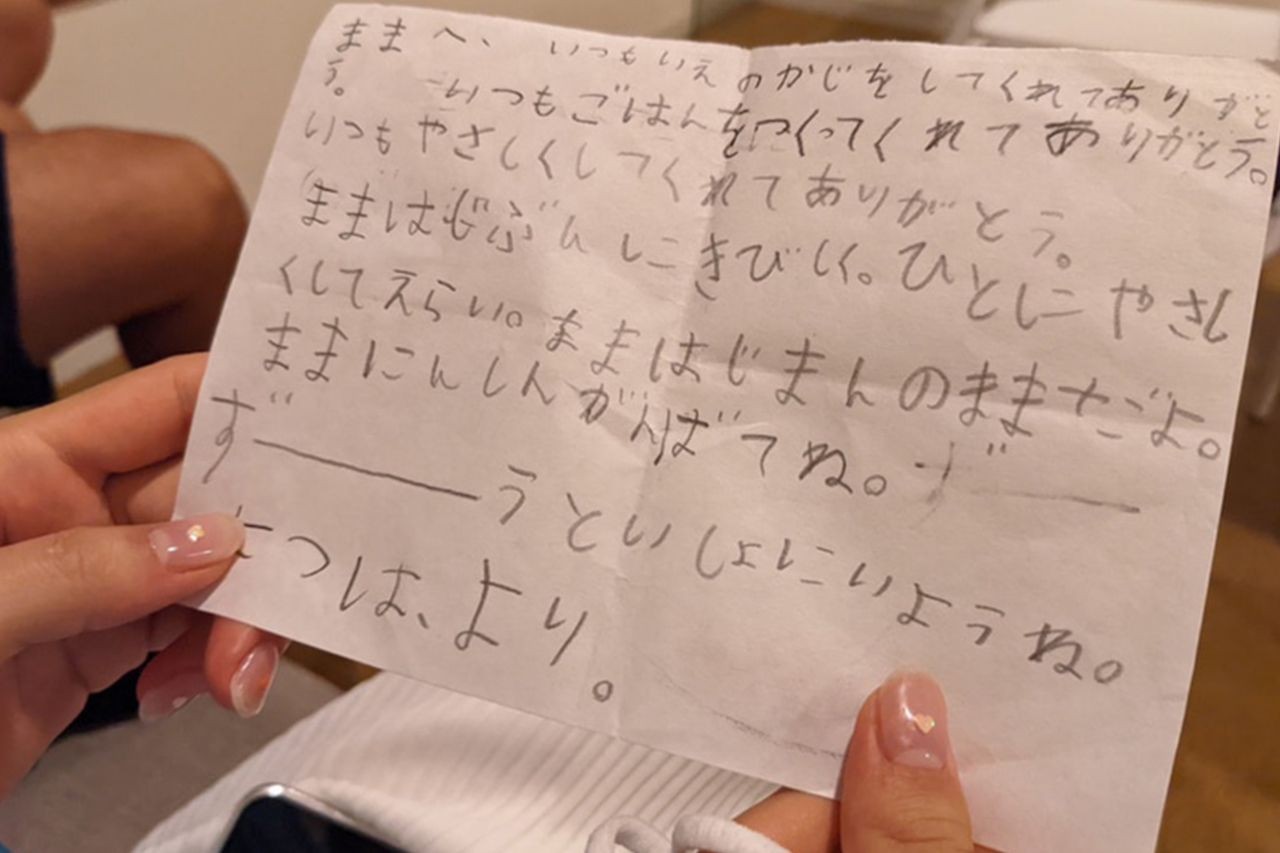 ままへ、いつもいえのかじをしてくれてありがと
う。いつもごはんをつくってくれてありがとう。
いつもやさしくしてくれてありがとう。
ままはじぶんにきびしく。ひとにやさし
くしてえらい。ままはじまんのままだよ。
ままにんしんがんばてね。ず――
ず――――うといしょにいようね。
さつは、より。